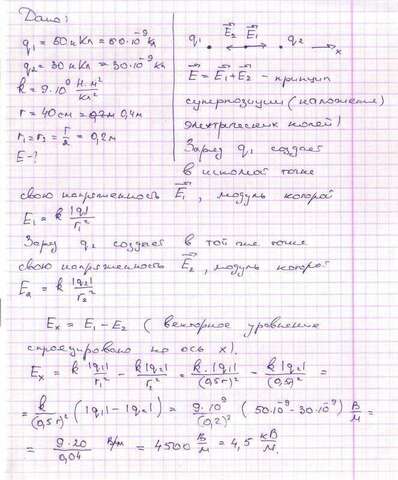 Дано:
q₁ = 50 нКл = 50·10⁻⁹ Кл
q₂ = 30 нКл = 30·10⁻⁹ Кл
k = 9·10⁹ Н·м²/Кл²
r = 40 см = 0,4 м
r₁ = r₂ = r/2 = 0,2 м
E - ?
q₁ E₂ E₁ q₂ x
E = E₁ + E₂ - принцип
суперпозиции (наложения)
электрических полей!
Заряд q₁ создает
в искомой точке
свою напряженность E₁, модуль которой
E₁ = k |q₁|/r₁²
Заряд q₂ создает в той же точке
свою напряженность E₂, модуль которой
E₂ = k |q₂|/r₂²
Eₓ = E₁ - E₂ (векторное уравнение
спроецировано на ось x).
Eₓ = k|q₁|/r₁² - k|q₂|/r₂² = k·|q₁|/(0,5r)² - k|q₂|/(0,5r)² =
= k/(0,5r)² (|q₁| - |q₂|) = 9·10⁹/(0,2)² (50·10⁻⁹ - 30·10⁻⁹) В/м =
= 9·20/0,04 В/м = 4500 В/м = 4,5 кВ/м.